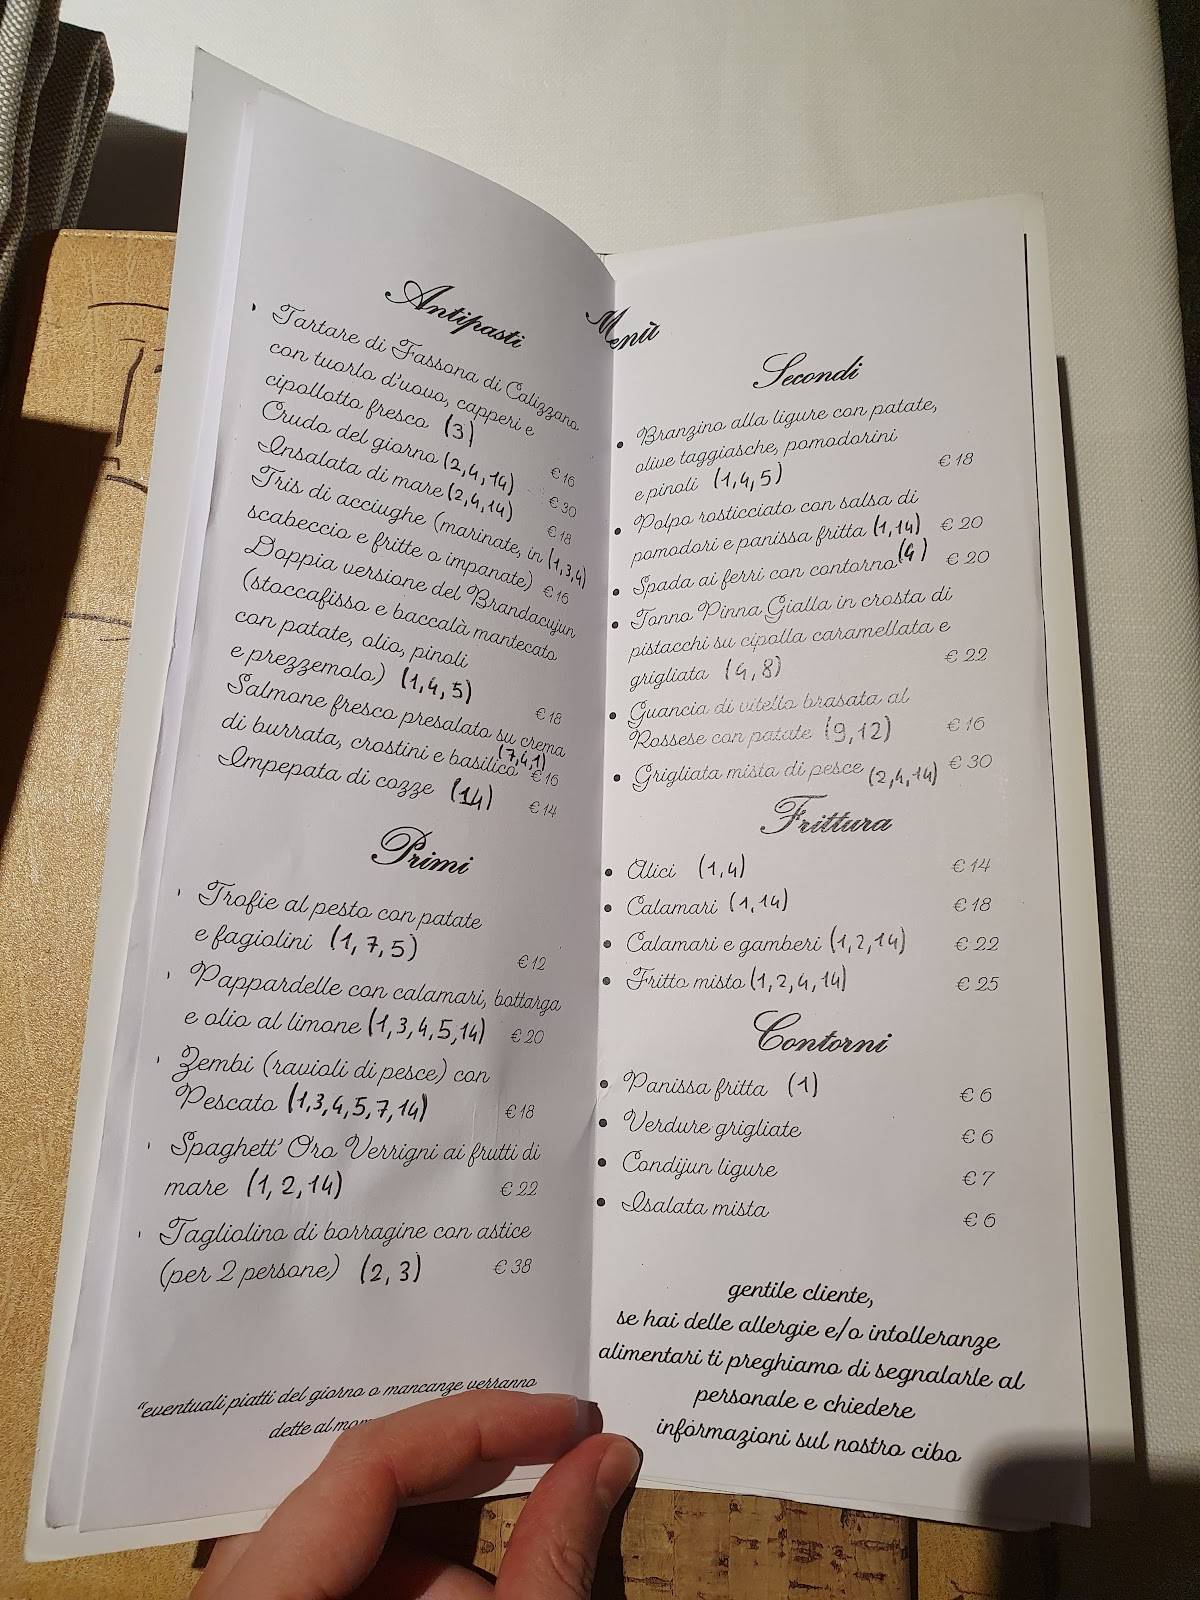 Menù
Antipasti
Tartare di Fassona di Calizzano
con tuorlo d'uovo, capperi e
cipollotto fresco (3) € 16
Crudo del giorno (2,4,14) € 30
Insalata di mare (2,4,14) € 18
Tris di acciughe (marinate, in (1,3,4)
scabeccio e fritte o impanate) € 16
Doppia versione del Brandacujun
(stoccafisso e baccalà mantecato
con patate, olio, pinoli
e prezzemolo) (1,4,5) € 18
Salmone fresco presalato su crema
di burrata, crostini e basilico (7,4,1) € 16
Impepata di cozze (14) € 14
Primi
Trofie al pesto con patate
e fagiolini (1,7,5) € 12
Pappardelle con calamari, bottarga
e olio al limone (1,3,4,5,14) € 20
Zembi (ravioli di pesce) con
Pescato (1,3,4,5,7,14) € 18
Spaghett' Oro Verrigni ai frutti di
mare (1,2,14) € 22
Tagliolino di borragine con astice
(per 2 persone) (2,3) € 38
"eventuali piatti del giorno o mancanze verranno
dette al mom
Secondi
• Branzino alla ligure con patate,
olive taggiasche, pomodorini
e pinoli (1,4,5) € 18
• Polpo rosticciato con salsa di
pomodori e panissa fritta (1,14) € 20
• Spada ai ferri con contorno (4) € 20
• Tonno Pinna Gialla in crosta di
pistacchi su cipolla caramellata e
grigliata (4,8) € 22
• Guancia di vitello brasata al
Rossese con patate (9,12) € 16
• Grigliata mista di pesce (2,4,14) € 30
Frittura
• Alici (1,4) € 14
• Calamari (1,14) € 18
• Calamari e gamberi (1,2,14) € 22
• Fritto misto (1,2,4,14) € 25
Contorni
• Panissa fritta (1) € 6
• Verdure grigliate € 6
• Condijun ligure € 7
• Isalata mista € 6
gentile cliente,
se hai delle allergie e/o intolleranze
alimentari ti preghiamo di segnalarle al
personale e chiedere
informazioni sul nostro cibo